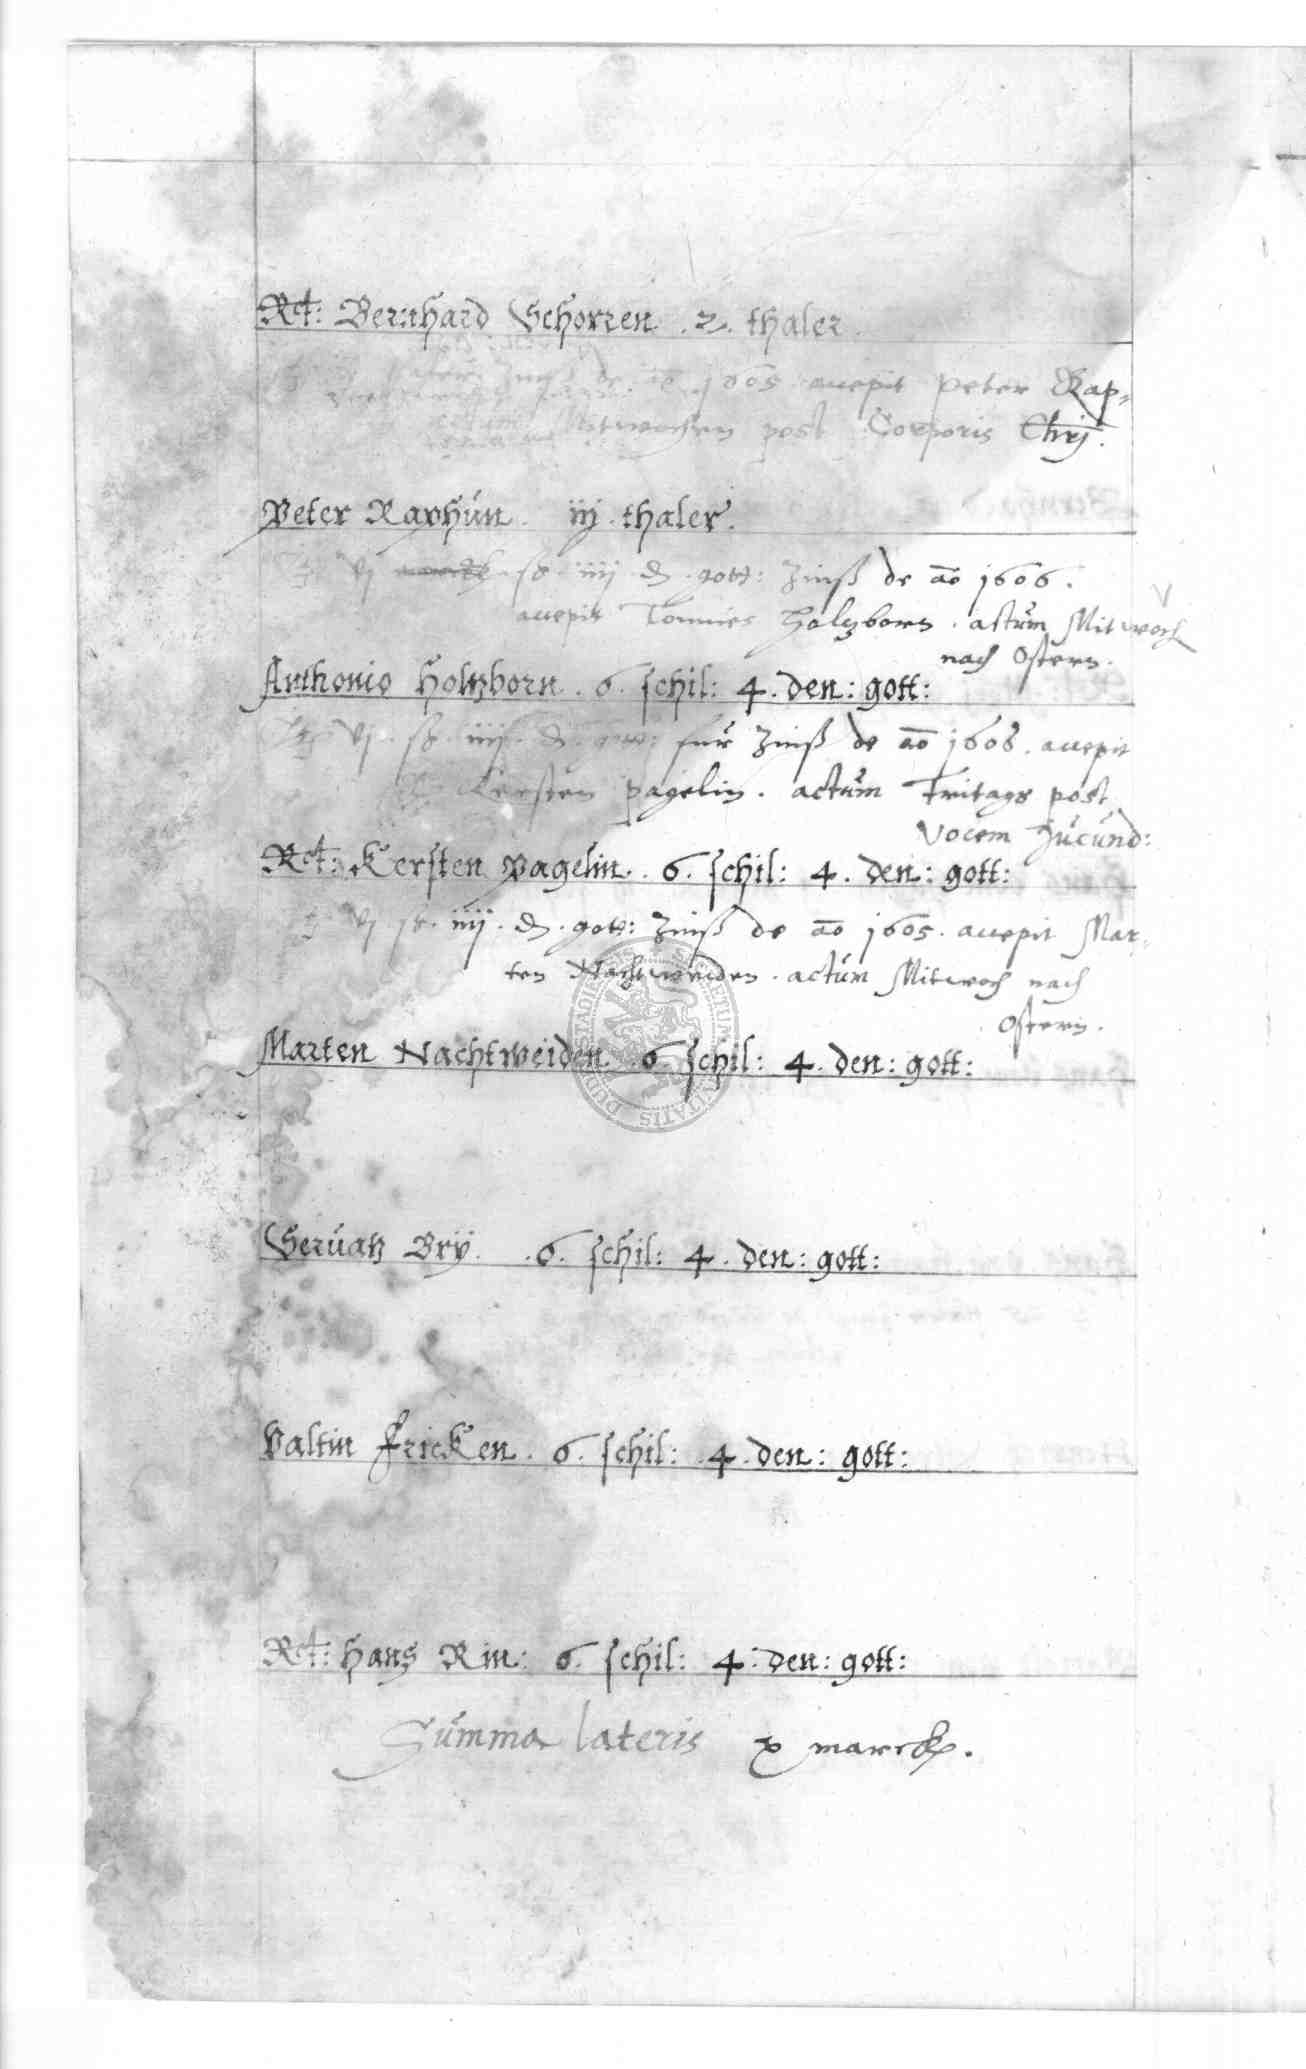 Rct: Bernhard Schorren . 2 . thaler .
Zinß de ao 1605 accepit Peter Rap-
Mitwochen post Corporis Chrj .
Peter Raphún . iij . thaler .
vj ß . iiij . d . gott : Zinß de ao 1606 .
accepit Tonnies Holzborn . actúm Mitwoch
nach Ostern .
Anthonio Holtzborn . 6 . schil : 4 . den : gott :
vj . ß . iiij . d . gott : fúr Zinß de ao 1608 . accepit
Kersten pagelin . actúm Fritags post
Vocem Júcúnd :
Rct : Kersten Pagelin . 6 . schil : 4 . den : gott :
vj . ß . iiij . d . gott : Zinß de ao 1605 . accepit Mar-
ten Nachtweiden . actúm Mitwoch nach
Ostern .
Marten Nachtweiden . 6 schil : 4 . den : gott :
SECRETUM CIVITATIS
Servatz Brÿ . . 6 . schil : 4 . den : gott :
Valtin Fricken . 6 . schil : 4 . den : gott :
Rct : Hans Rin : 6 . schil : 4 : den : gott :
Súmma lateris x marck .